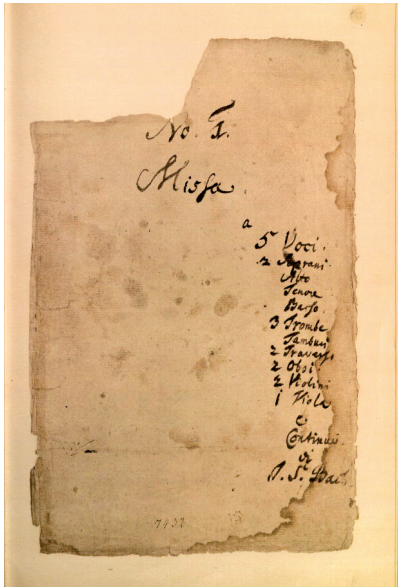 No. I.
Missa.
a
5 Voci.
2 Soprani.
Alto
Tenore
Basso.
3 Trombe
Tamburi
2 Travers
2 Oboi
2 Violini
1 Viola
e
Continuo
di
J. S. Bach
7432